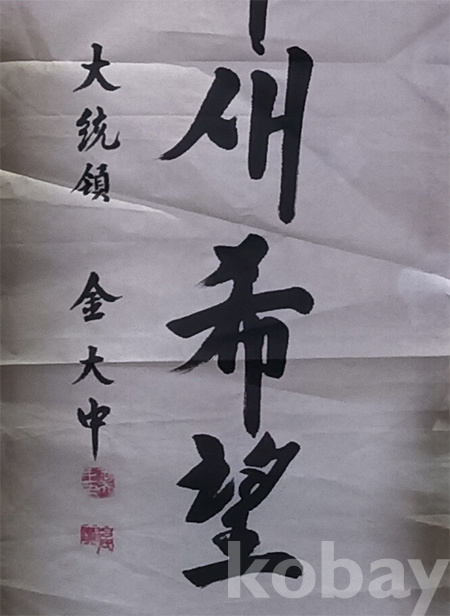 새希望
大統領 金大中
kobay